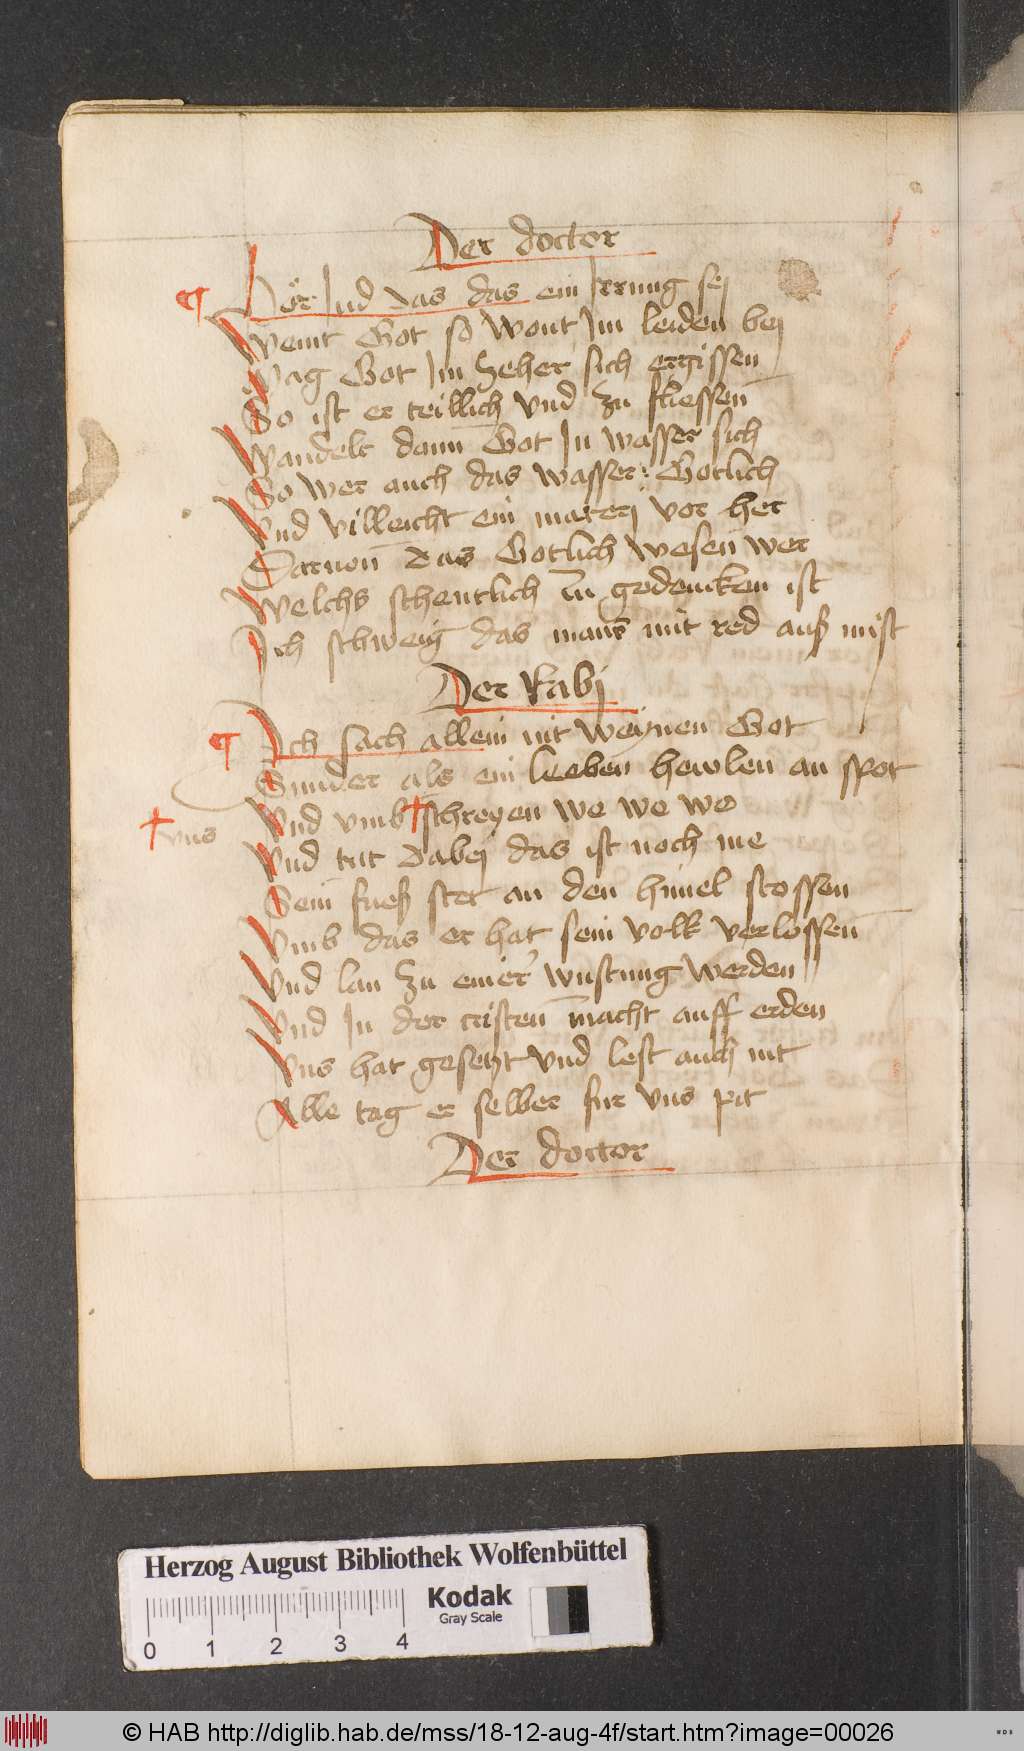 Der doctor
¶ Hör Jud das das ein Irrung sej
Weint Got so wont Im leiden bej
Mag Got In zeher sich ergissen
So ist er teillich vnd zu fliessen
Wandelt dann Got In wasser sich
So wer auch das wasser Gotlich
Vnd villeicht ein materj vor her
Daruon das Gotlich wesen wer
Welchs schentlich zu gedencken ist
Ich schweig das mans mit red auß mist
Der Rabj
¶ Ich sach allein nit weynen Got
Sunder als ein leeben hewlen an spot
Vnd vmb † schreyen we we we
† vns
Vnd tut dabej das ist noch me
Sein fueß stet an den himel stossen
Vmb das er hat sein volk verlossen
Vnd lan zu einer wustung werden
Vnd In der cristen macht auff erden
Vns hat gesetzt vnd lest auch nit
Alle tag er selber fur vns pit
Der doctor
Herzog August Bibliothek Wolfenbüttel
Kodak
Gray Scale
0 1 2 3 4
© HAB http://diglib.hab.de/mss/18-12-aug-4f/start.htm?image=00026